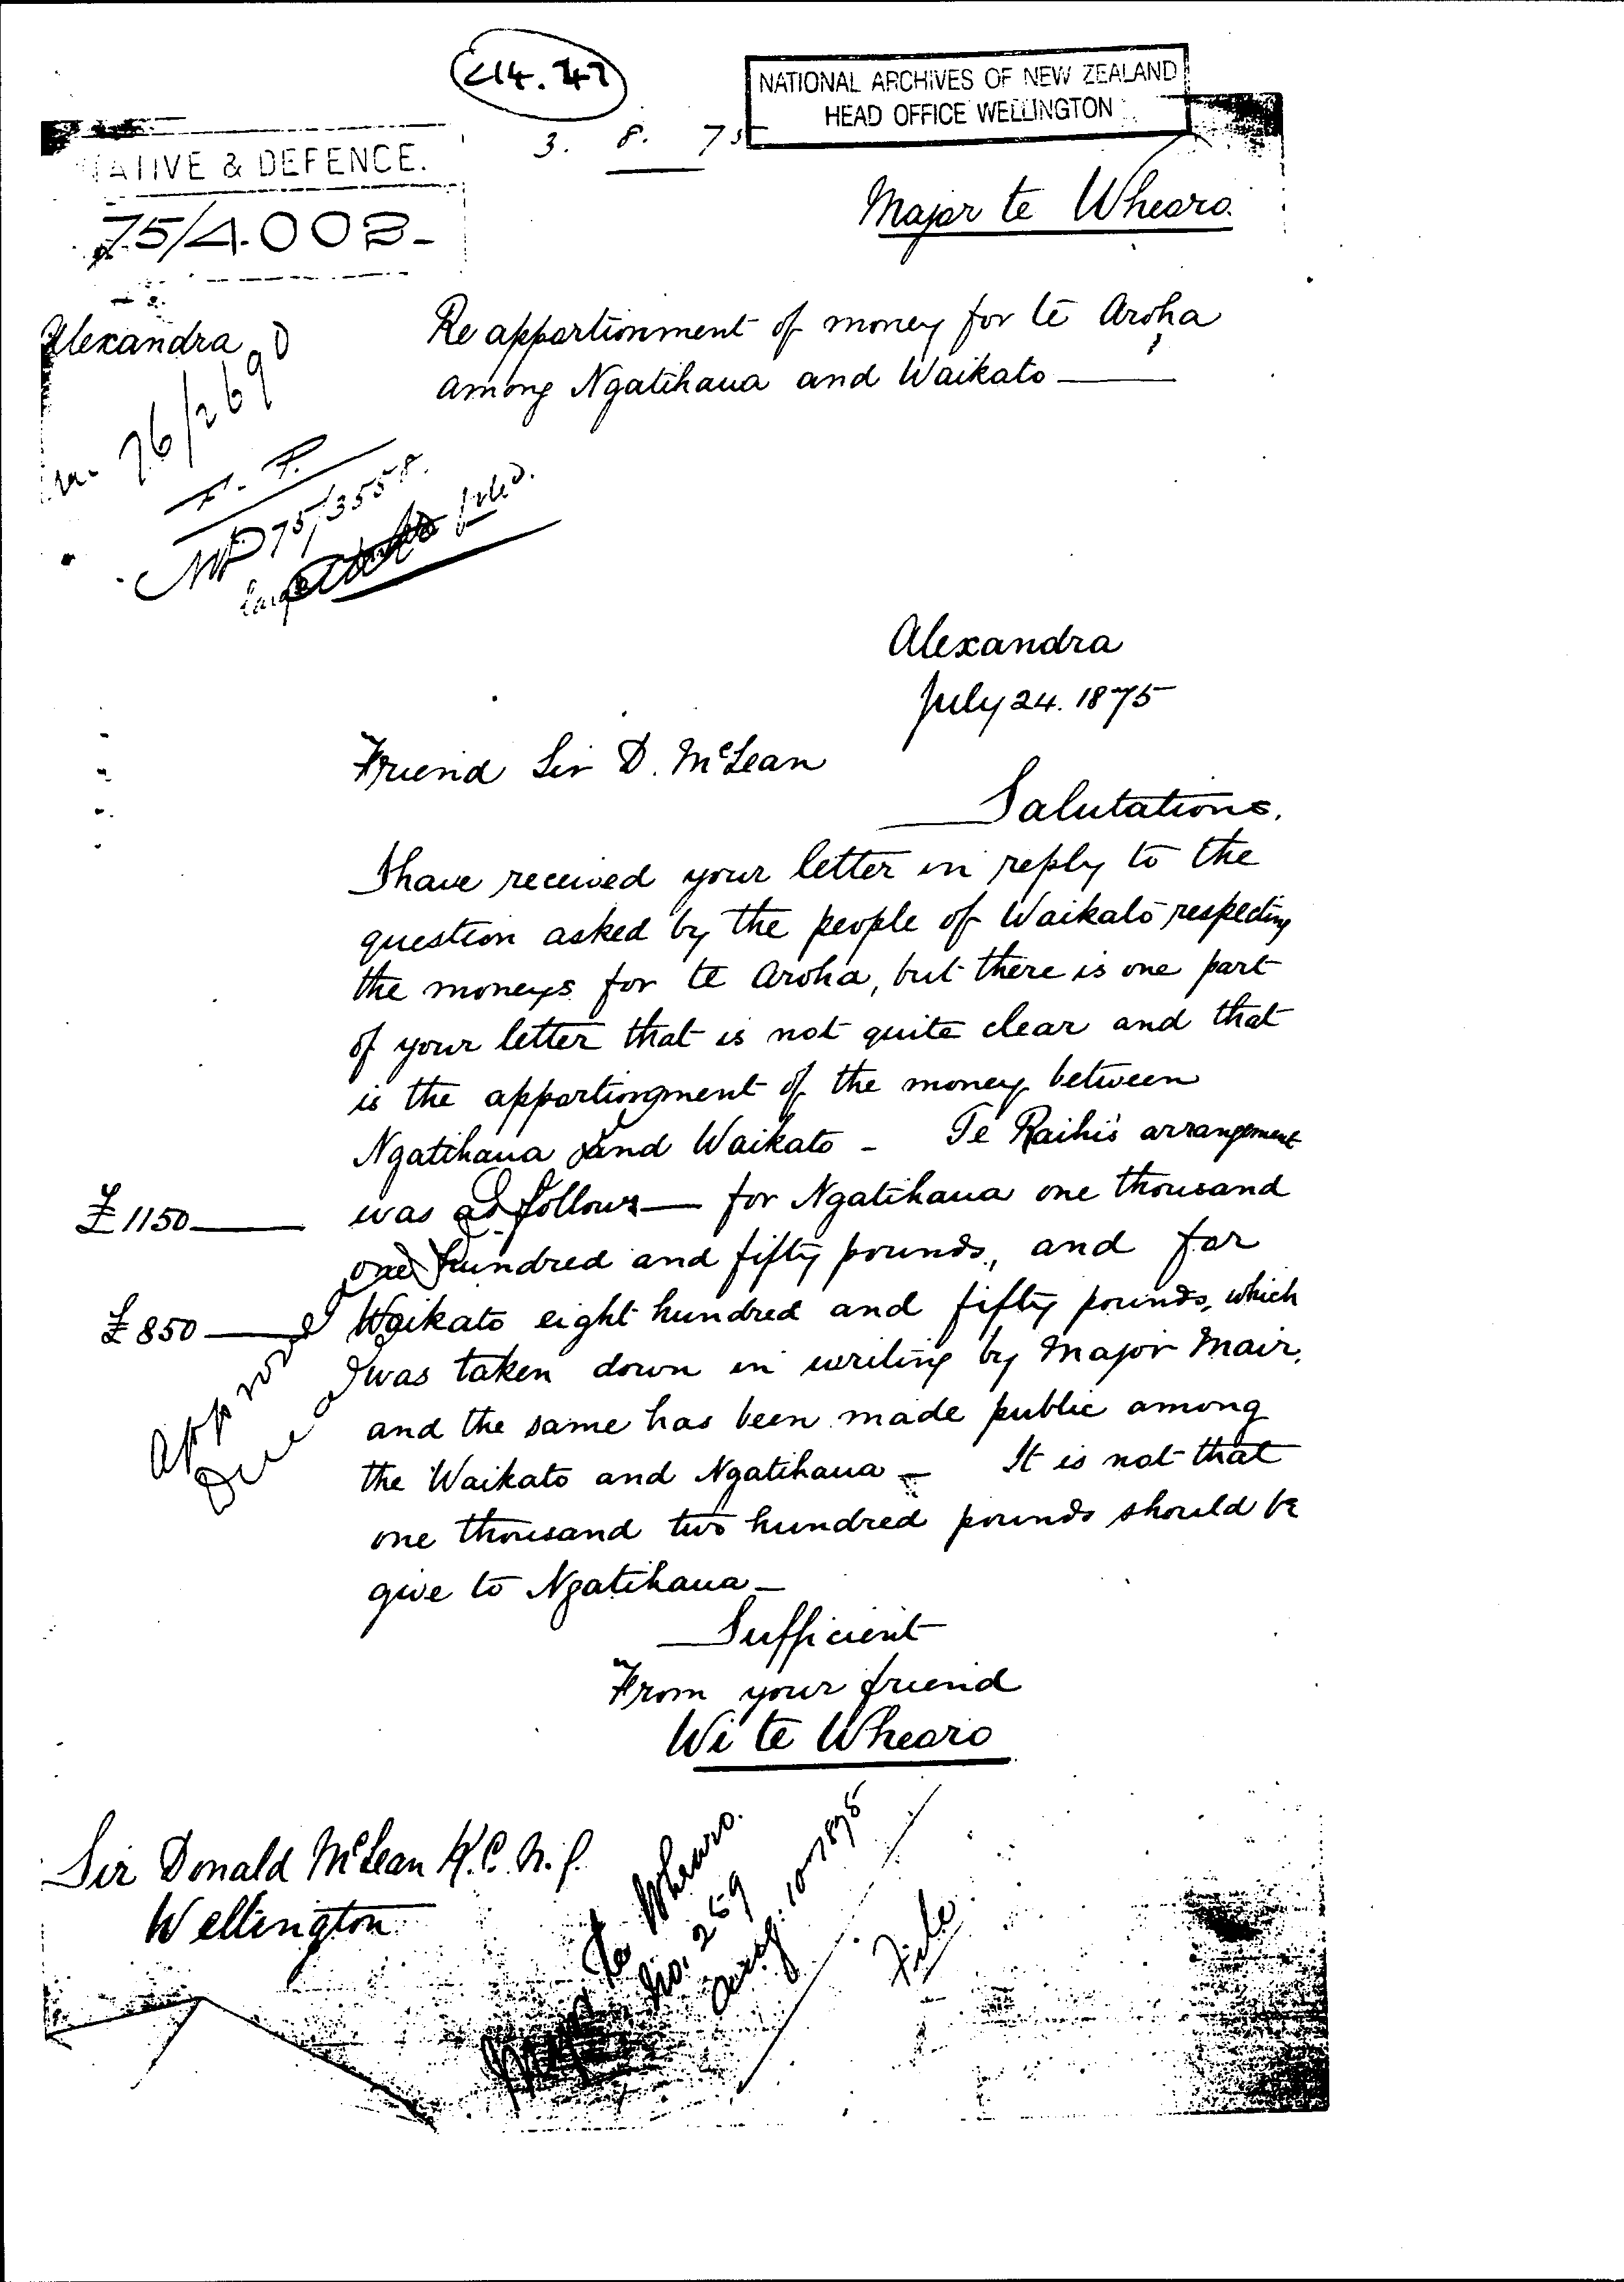 NATIONAL ARCHIVES OF NEW ZEALAND
HEAD OFFICE WELLINGTON
3. 8. 75
NATIVE & DEFENCE.
75/4003
Major te Whearo.
Alexandra
Re apportionment of money for te Aroha
among Ngatihaua and Waikato
76/2690
F. P.
NP 75/3558.
Alexandra
July 24. 1875
Friend Sir D. McLean
Salutations.
I have received your letter in reply to the
question asked by the people of Waikato respecting
the moneys for te Aroha, but there is one part
of your letter that is not quite clear and that
is the apportionment of the money between
Ngatihaua and Waikato - Te Raihi's arrangement
£1150 was as follows — for Ngatihaua one thousand
one hundred and fifty pounds, and for
£850 Waikato eight hundred and fifty pounds, which
was taken down in writing by Major Mair,
and the same has been made public among
the Waikato and Ngatihaua - It is not that
one thousand two hundred pounds should be
give to Ngatihaua -
Approved
Sufficient
From your friend
Wi te Whearo
Sir Donald McLean K.C.M.G.
Wellington
Major Te Whearo.
No. 259
Aug. 10-1875
File